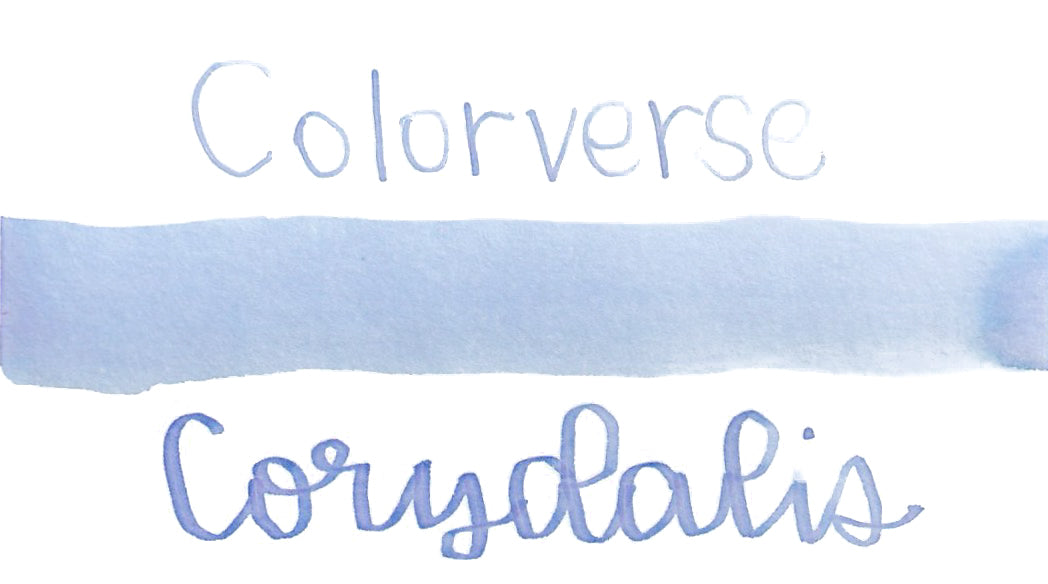 Colorverse
Corydalis